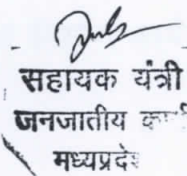 सहायक यंत्री
जनजातीय
मध्यप्रदेश